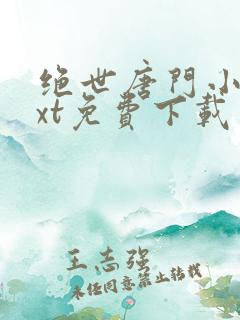 绝世唐門小
xt免費下載
王志强
未经同意禁止转载